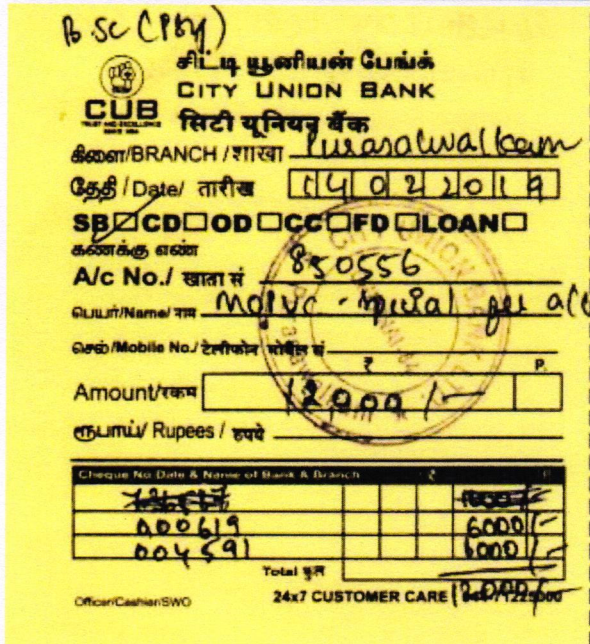 B.SC (PSY)
சிட்டி யூனியன் பேங்க்
CITY UNION BANK
CUB
TRUST AND EXCELLENCE
SINCE 1904
सिटी यूनियन बैंक
கிளை/BRANCH / शाखा Purasalwalkam
தேதி / Date/ तारीख 14022019
SB☐CD☐OD☐CC☐FD☐LOAN☐
கணக்கு எண்
A/c No./ खाता सं 850556
பெயர்/Name/ नाम MOPVC - Special fee a/c
செல்/Mobile No./ टेलीफोन मोबैल सं
₹ P.
Amount/रकम 12,000/-
ரூபாய்/ Rupees / रुपये
Cheque No Date & Name of Bank & Branch ₹ P
000619 6000/-
004591 6000/-
Total कुल 12,000/-
Officer/Cashier/SWO 24x7 CUSTOMER CARE